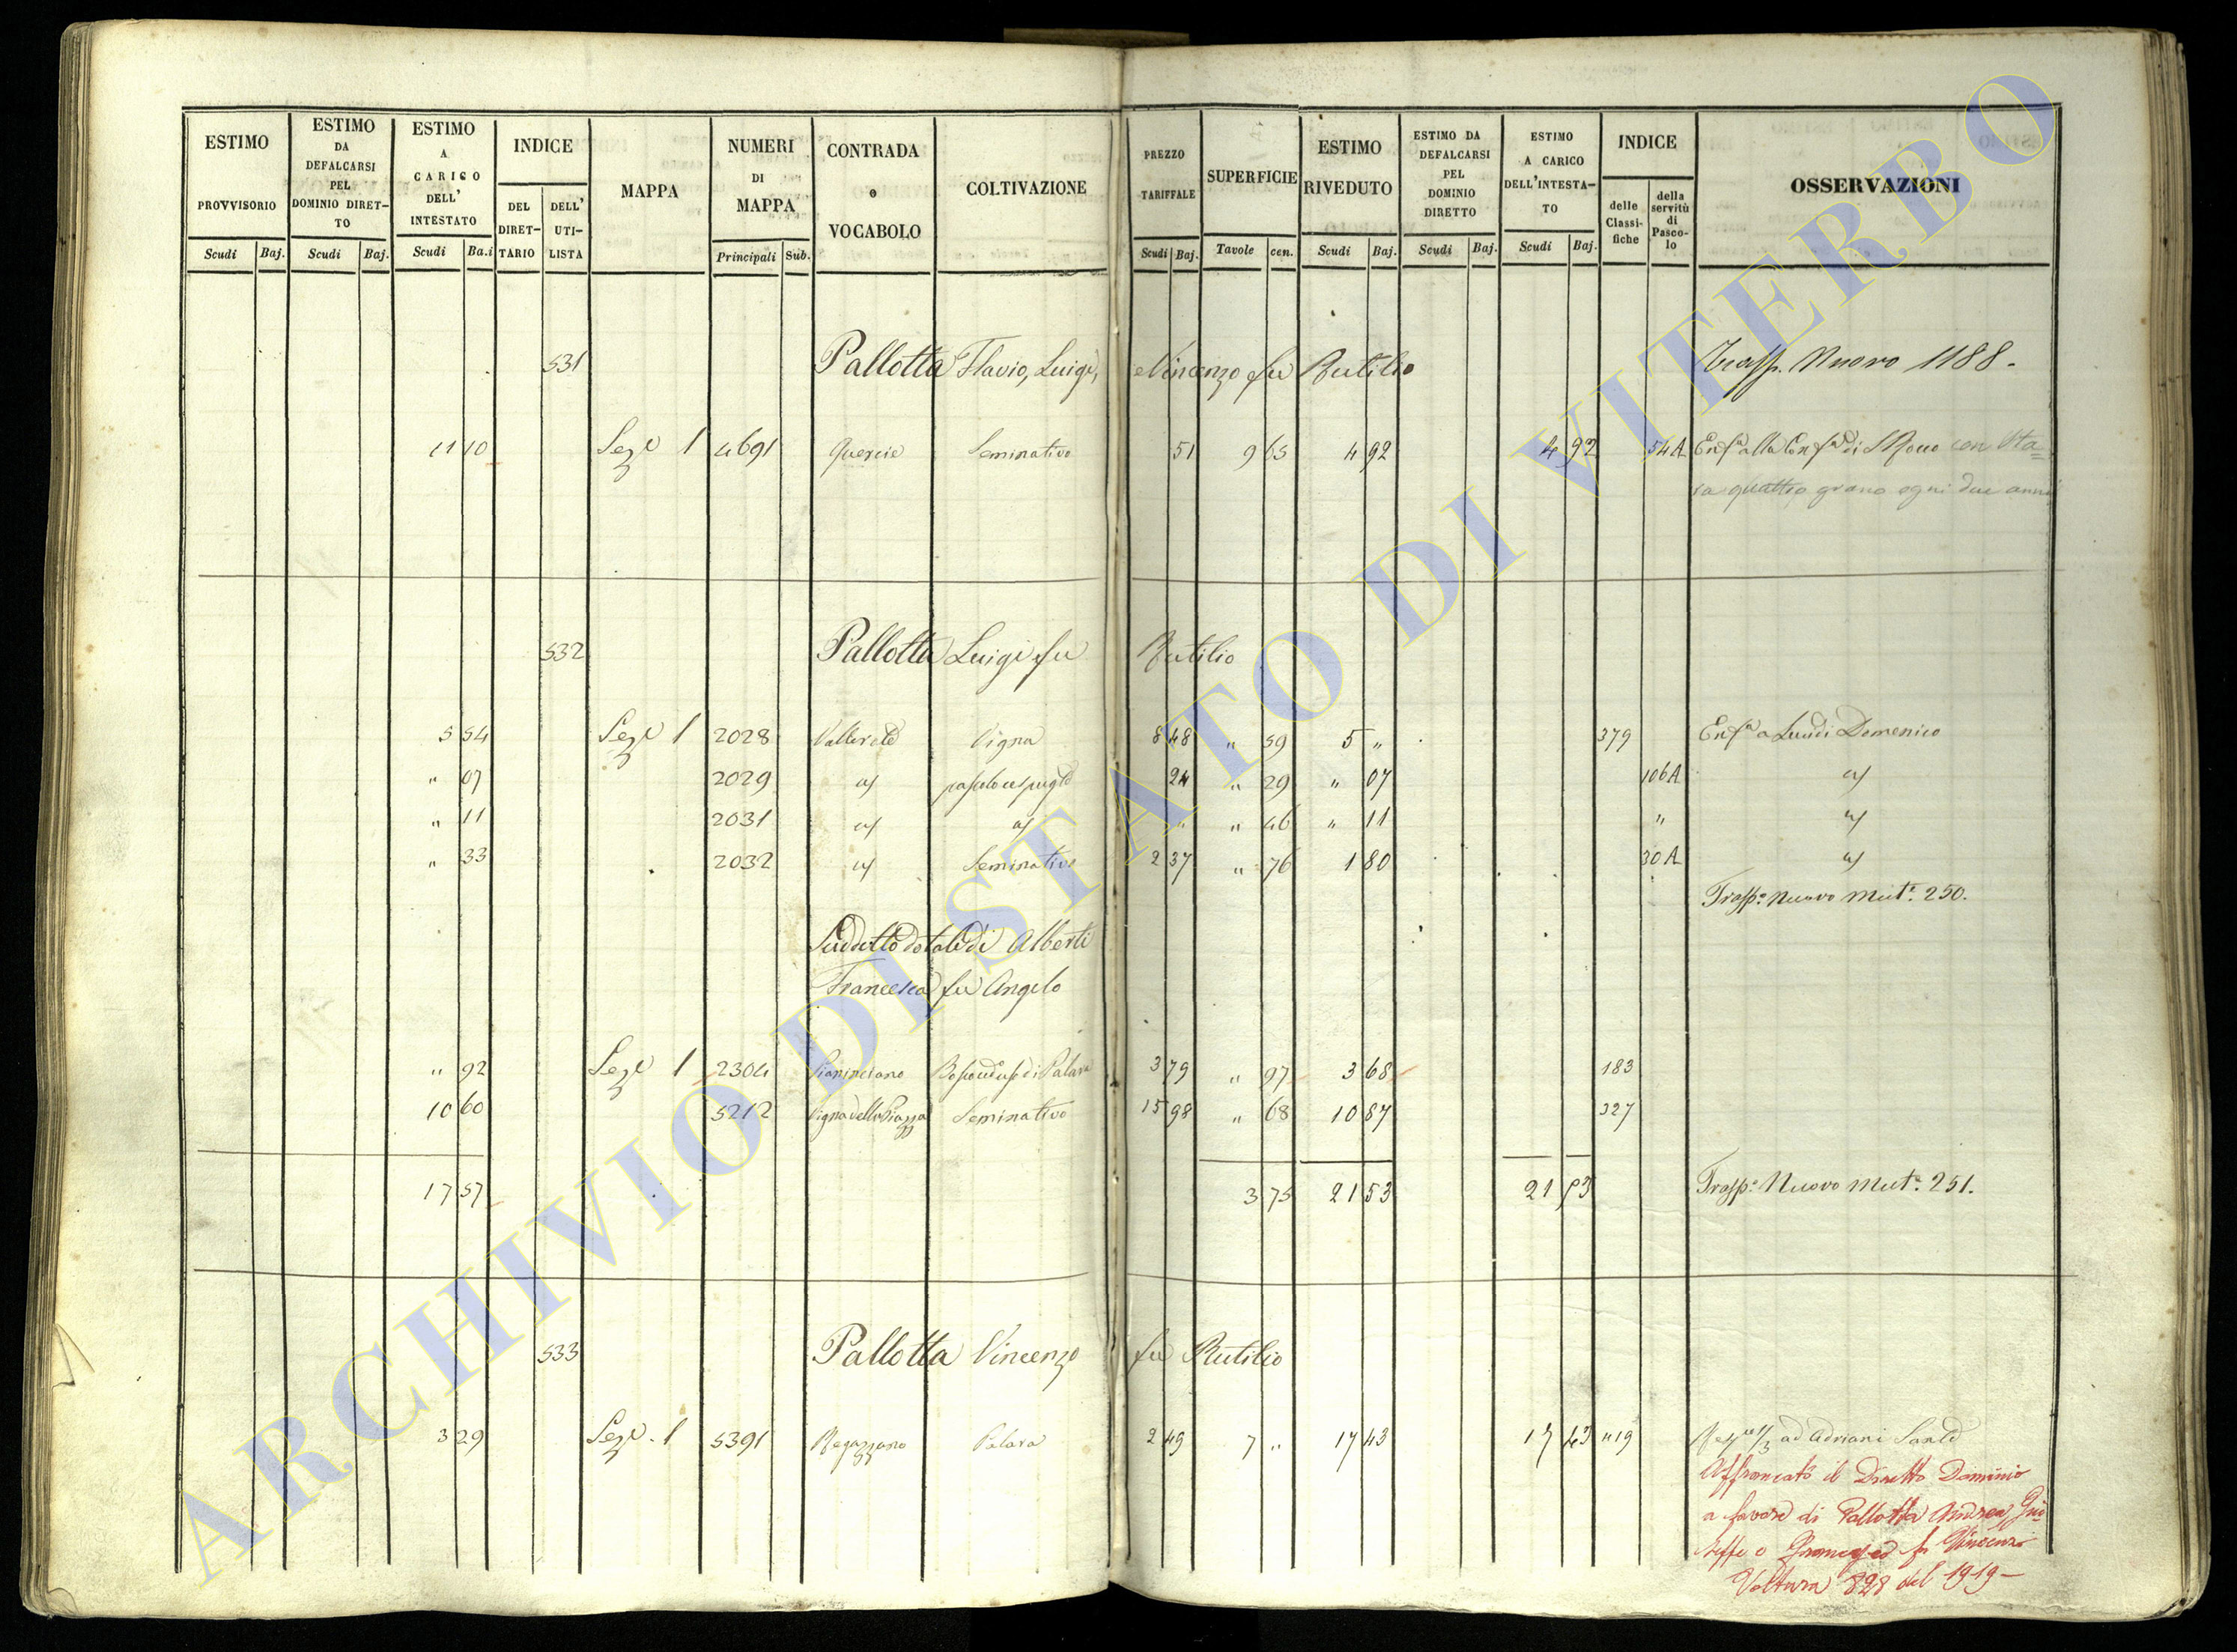 ESTIMO PROVVISORIO
Scudi Baj.
ESTIMO DA DEFALCARSI PEL DOMINIO DIRET-TO
Scudi Baj.
ESTIMO A CARICO DELL' INTESTATO
Scudi Ba.i
INDICE
DEL DIRET-TARIO
DELL' UTI-LISTA
MAPPA
NUMERI DI MAPPA
Principali Sub.
CONTRADA o VOCABOLO
COLTIVAZIONE
PREZZO TARIFFALE
Scudi Baj.
SUPERFICIE
Tavole cen.
ESTIMO RIVEDUTO
Scudi Baj.
ESTIMO DA DEFALCARSI PEL DOMINIO DIRETTO
Scudi Baj.
ESTIMO A CARICO DELL'INTESTA-TO
Scudi Baj.
INDICE
delle Classi-fiche
della servitù di Pasco-lo
OSSERVAZIONI
531 Pallotta Flavio, Luigi, e Vincenzo fu Rutilio Trasp. Nuovo 1188.
11 10 Sez.e 1 4691 Quercie Seminativo 51 9 65 4 92 4 92 54A Enf.a alla Conf.a di S Rocco con Sta=
ra quattro grano ogni due anni
532 Pallotta Luigi fu Rutilio
5 54 Sez.e 1 2028 Vigna 8 48 " 59 5 " 379 Enf.a a Domenico
" 07 2029 a/ 24 " 29 " 07 106A a/
" 11 2031 a/ a/ " " 46 " 11 " a/
" 33 2032 a/ Seminativo 2 37 " 76 1 80 30A a/
Trasp.o Nuovo Mut.e 250.
Suddetto dotale di Alberti
Francesca fu Angelo
" 92 Sez.e 1 2304 3 79 " 97 3 68 183
10 60 5212 Vigna della Piazza Seminativo 15 98 " 68 10 87 327
17 57 3 75 21 53 21 53 Trasp.o Nuovo Mut.e 251.
533 Pallotta Vincenzo fu Rutilio
3 29 Sez.e 1 5391 Ragazzano Palara 2 49 7 " 17 43 17 43 "19 1/3 ad Adriani
Affrancato il Diretto Dominio
a favore di Pallotta Andrea, Giu
seppe e fu Vincenzo
Voltura 828 del 1919-
ARCHIVIO DI STATO DI VITERBO